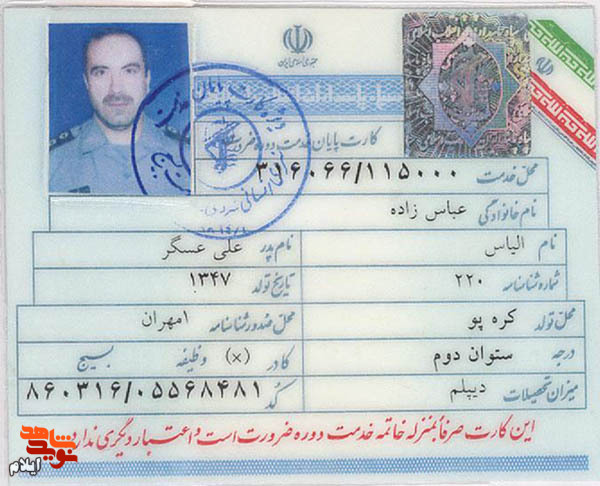 جمهوری اسلامی ایران
کارت پایان خدمت دوره ضرورت
محل خدمت ۳۱۶۰۶۶/۱۱۵۰۰۰
نام خانوادگی عباس زاده
نام الیاس نام پدر علی عسگر
شماره شناسنامه ۲۲۰ تاریخ تولد ۱۳۴۷
محل تولد کره پو محل صدور شناسنامه امهران
درجه ستوان دوم کادر (×) وظیفه بسیج
میزان تحصیلات دیپلم کد ۸۶۰۳۱۶/۰۵۵۶۸۴۸۱
این کارت صرفاً بمنزله خاتمه خدمت دوره ضرورت است و اعتبار دیگری ندارد.
نوید شاهد
ایلام